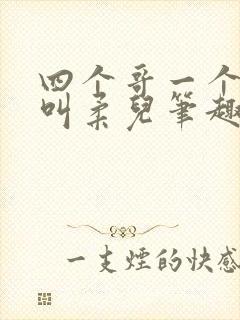 四个哥一个
叫柔儿笔趣
一支煙的快感